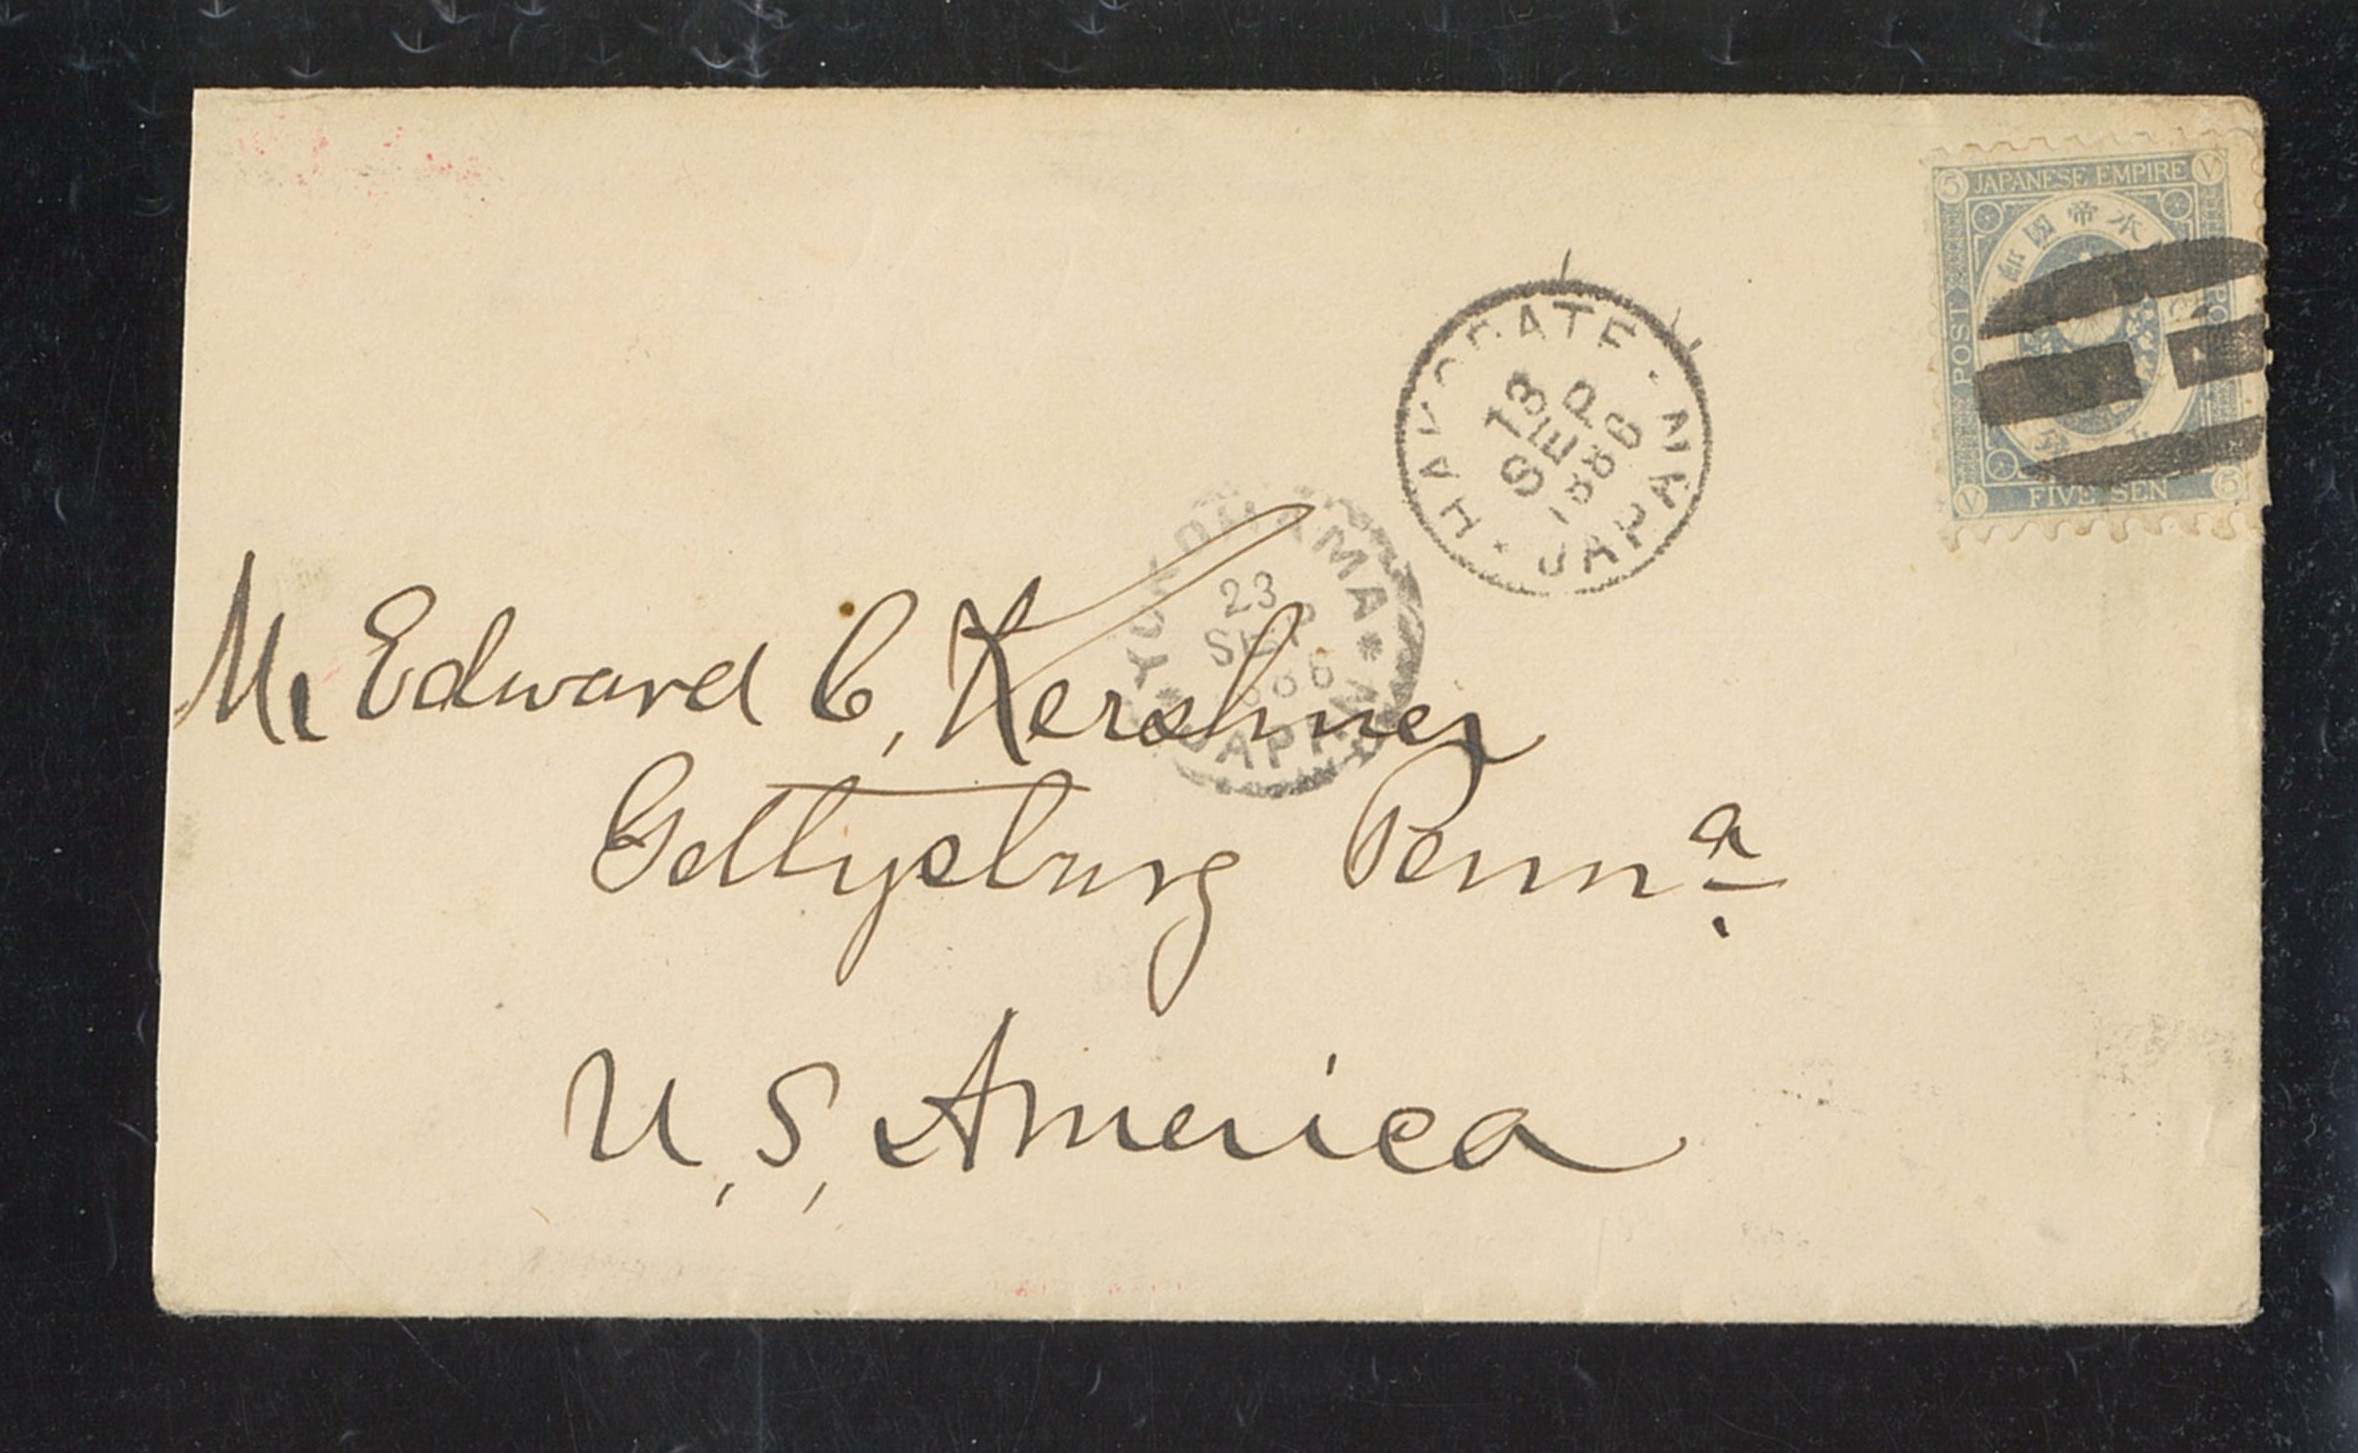 5 JAPANESE EMPIRE V
帝國
POST
V FIVE SEN 5
HAKODATE · JAPAN ·
13
SEP
1886
YOKOHAMA
23
SEP
JAPAN
Mr Edward C. Kershner
Gettysburg Penna.
U, S, America